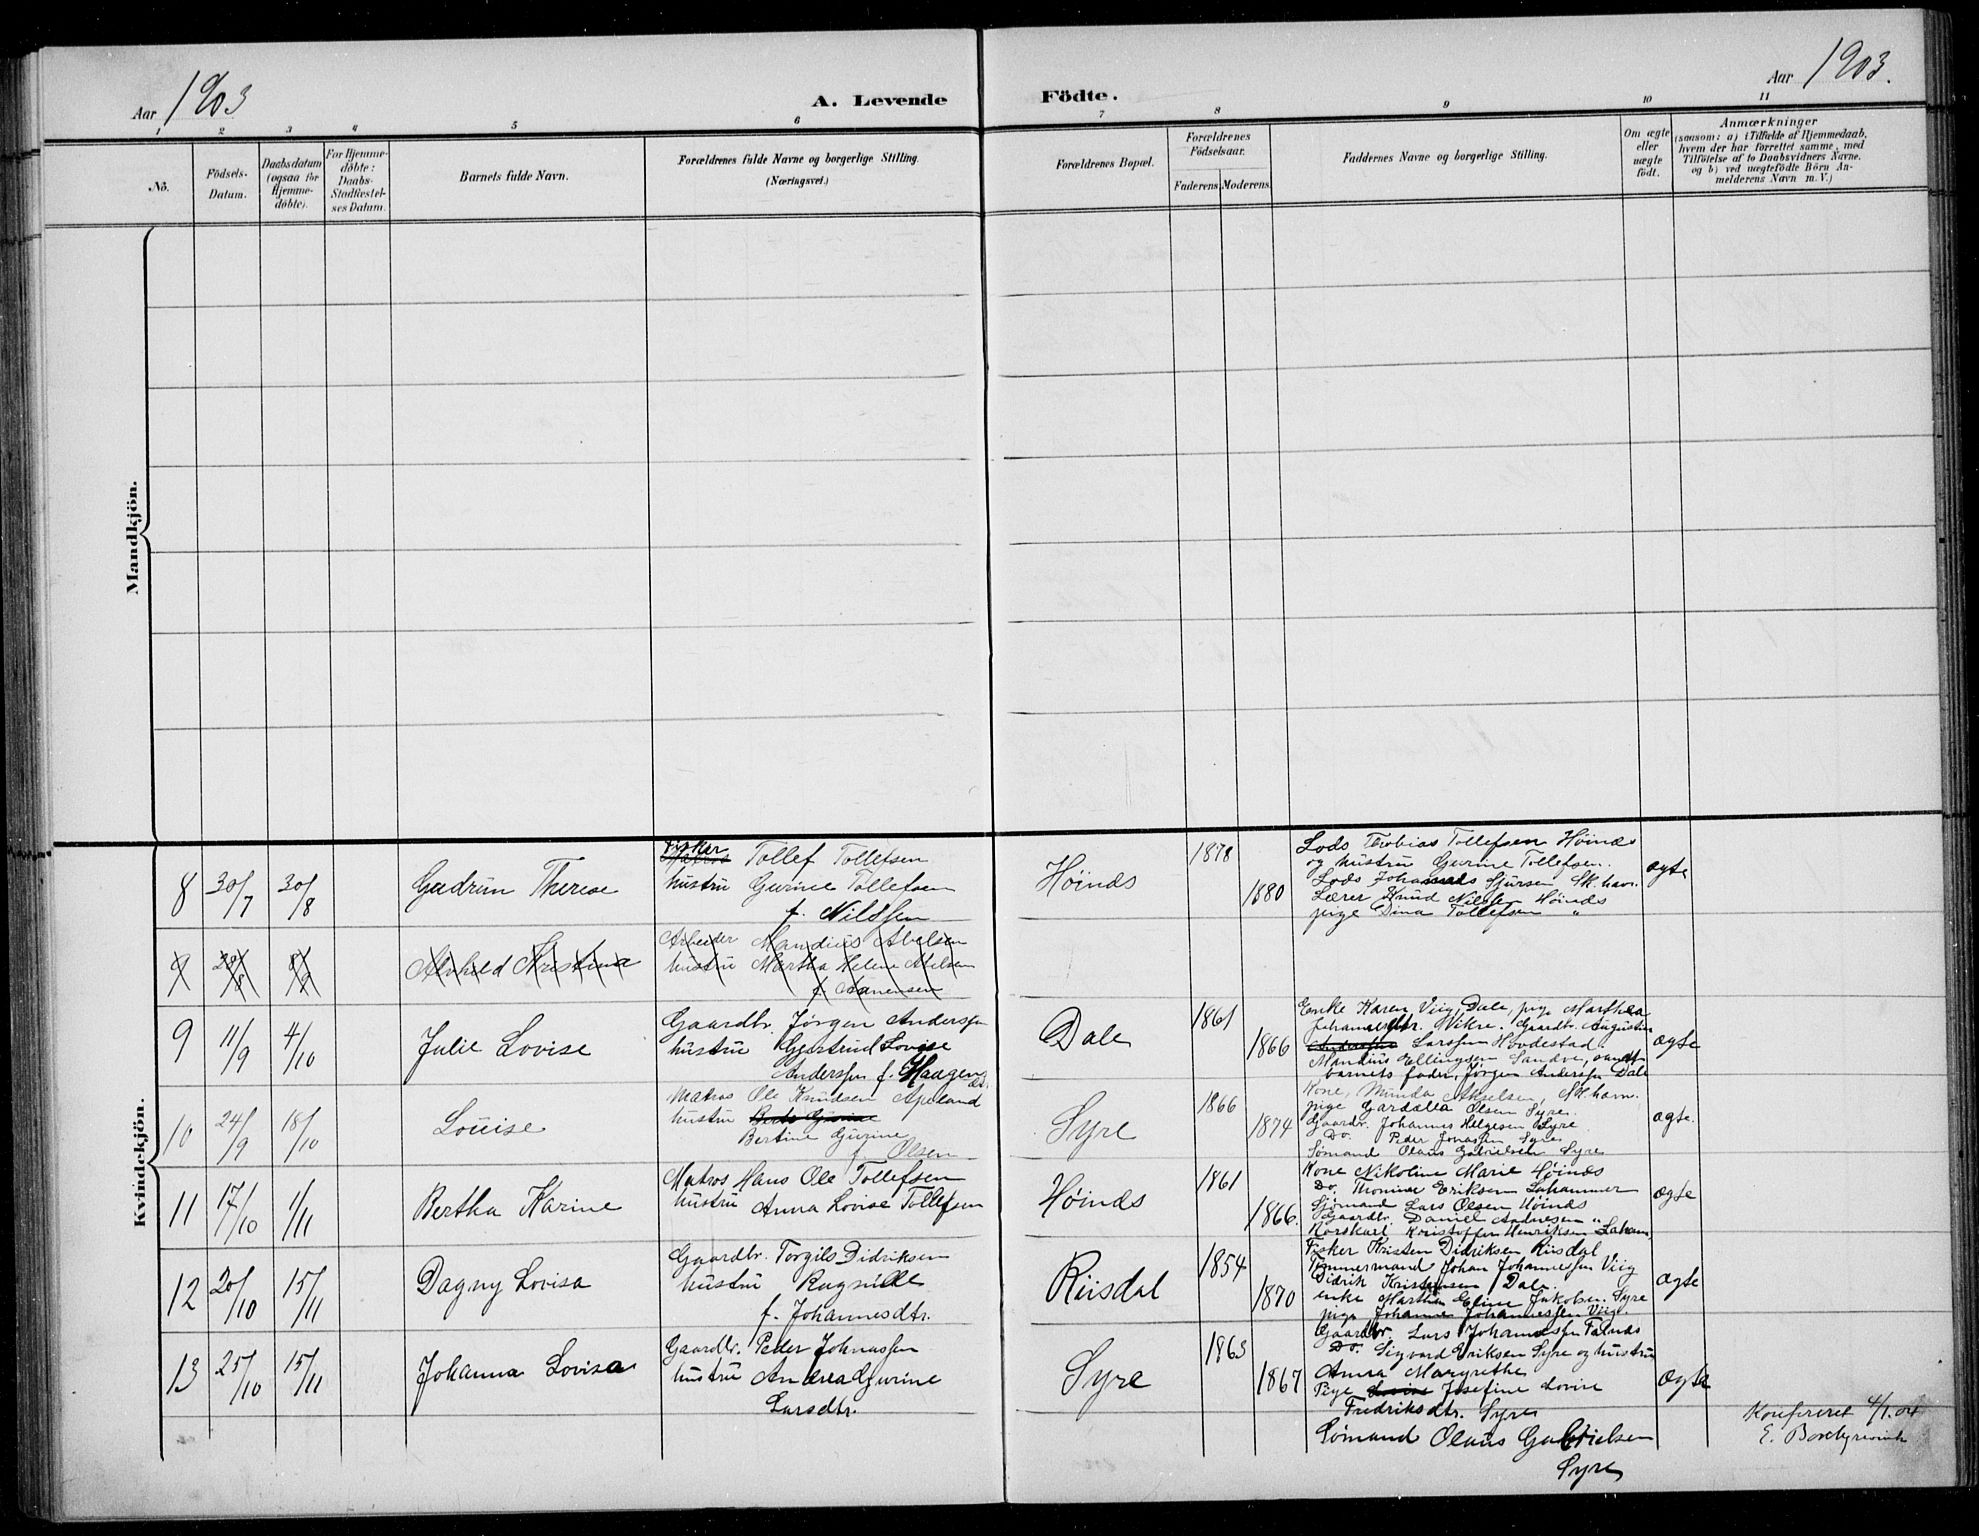 Aar 1903
A. Levende Födte.
Aar 1903.
1 2 3 4 5 6 7 8 9 10 11
Nö.
Födsels-
Datum.
Daabsdatum
(ogsaa for
Hjemme-
döbte).
For Hjemme-
döbte:
Daabs-
Stadfæstel-
ses Datum.
Barnets fulde Navn.
Forældrenes fulde Navne og borgerlige Stilling.
(Næringsvei.)
Forældrenes Bopæl.
Forældrenes
Födselsaar.
Faderens. Moderens.
Faddernes Navne og borgerlige Stilling.
Om ægte
eller
uægte
födt.
Anmærkninger
(saasom: a) i Tilfælde af Hjemmedaab,
hvem der har forrettet samme, med
Tilföielse af to Daabsvidners Navne,
og b) ved uægtefödte Börn An-
melderens Navn m. V.)
Mandkjön.
Kvindekjön.
8 30/7 30/8 Gudrun Therese
Fisker Matros Tollef Tollefsen
hustru Gurine Tollefsen
f. Nilssen
Høinds 1878 1880
Lods Thobias Tollefsen Høinds
og hustru Gurine Tollefsen.
Lods Johannes Sjursen, Sk.havn.
Lærer Knud Nilsen Høinds
pige Dina Tollefsen "
ægte
9 28/8 8/9 Alvhild Kristina
Arbeider Mandius Abelsen
hustru Martha Helene Abelsen
f.
9 11/9 4/10 Julie Lovise
Gaardbr. Jørgen Anderssen
hustru Gjertrud Lovise
Anderssen f. Haugen
Dale 1861 1866
Enke Karen Viig, Dale, pige Marthea
Johannesdtr. Vikre. Gaardbr. Augustin
Larssen Hovdestad.
Mandius Ellingsen Sandve, samt
barnets fader, Jørgen Anderssen Dale
ægte
10 24/9 18/10 Louise
Matros Ole Knudsen Apeland
hustru
Bertine Gurine
f. Olsen
Syre 1866 1874
Kone, Munda Akselsen, Sk.havn.
pige Gardalia Olsen Syre.
Gaardbr. Johannes Helgesen Syre
Do. Peder Jonassen Syre
Sømand Olaus Gabrielsen Syre
ægte.
11 17/10 1/11 Bertha Karine
Matros Hans Ole Tollefsen
hustru Anna Lovise Tollefsen
Høinds 1861 1866.
Kone Nikoline Marie Høinds
Do. Thomine Eriksen Lahammer
Sjømand Lars Olsen Høinds
Gaardbr. Daniel Andresen "
Kristoffer Henriksen Laham.
ægte
12 20/10 15/11 Dagny Lovisa
Gaardbr. Torgils Didriksen
hustru Ragnilde
f. Johannesdtr.
Riisdal 1854 1870
Fisker Kristen Didriksen Riisdal
Tømmermand Johan Johannessen Viig
Didrik Kristensen Dale.
enke Martha Eline Jakobsen Syre
pige Johanne Johannessen Viig.
ægte
13 25/10 15/11 Johanna Lovisa
Gaardbr. Peder Johnassen
hustru Andrea Gurine
Larsdtr.
Syre 1863 1867
Gaardbr. Lars Johannessen Falnæs
Do. Sigvard Eriksen Syre og hustru
Anna Margrethe
Pige Lovise Josefine Lovise
Fredriksdtr. Syre
Sømand Olaus Gabrielsen
Syre
ægte
Konfereret 4/1.04
E.